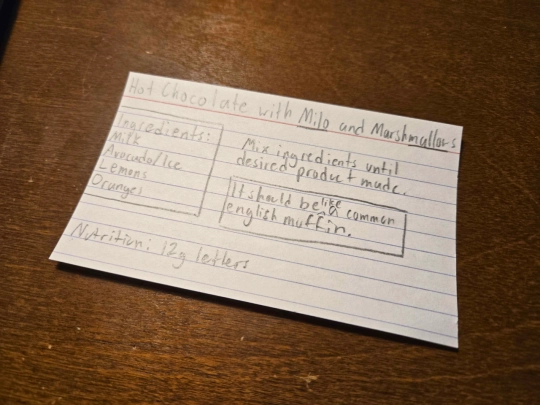 Hot Chocolate with Milo and Marshmallows
Ingredients:
Milk
Avocado/Ice
Lemons
Oranges
Mix ingredients until
desired product made.
It should be like a common
english muffin.
Nutrition: 12g letters